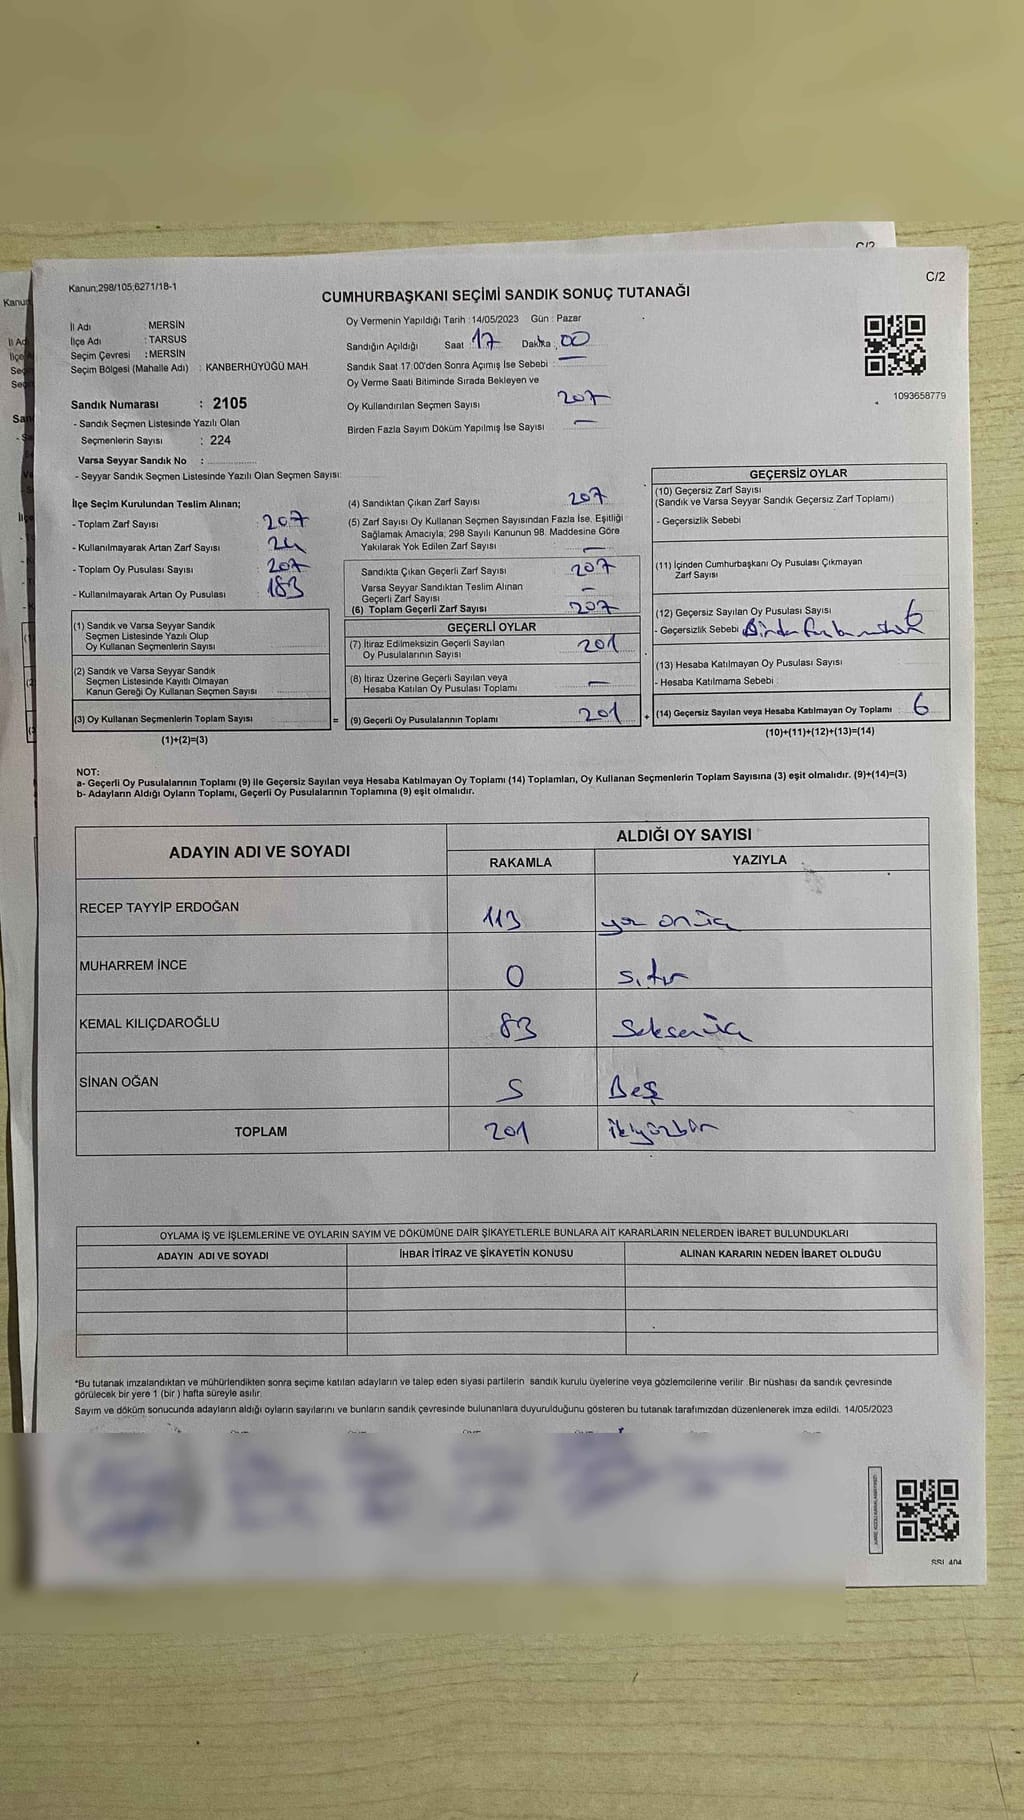 C/2
Kanun;298/105;6271/18-1
C/2
CUMHURBAŞKANI SEÇİMİ SANDIK SONUÇ TUTANAĞI
İl Adı : MERSİN
İlçe Adı : TARSUS
Seçim Çevresi : MERSİN
Seçim Bölgesi (Mahalle Adı) : KANBERHÜYÜĞÜ MAH
Sandık Numarası : 2105
- Sandık Seçmen Listesinde Yazılı Olan
Seçmenlerin Sayısı : 224
Varsa Seyyar Sandık No :
- Seyyar Sandık Seçmen Listesinde Yazılı Olan Seçmen Sayısı:
Oy Vermenin Yapıldığı Tarih :14/05/2023 Gün : Pazar
Sandığın Açıldığı Saat : 17 Dakika : 00
Sandık Saat 17:00'den Sonra Açımış İse Sebebi : —
Oy Verme Saati Bitiminde Sırada Bekleyen ve
Oy Kullandırılan Seçmen Sayısı 207
Birden Fazla Sayım Döküm Yapılmış İse Sayısı —
1093658779
İlçe Seçim Kurulundan Teslim Alınan;
- Toplam Zarf Sayısı : 207
- Kullanılmayarak Artan Zarf Sayısı : 24
- Toplam Oy Pusulası Sayısı : 207
- Kullanılmayarak Artan Oy Pusulası : 183
(1) Sandık ve Varsa Seyyar Sandık
Seçmen Listesinde Yazılı Olup
Oy Kullanan Seçmenlerin Sayısı
(2) Sandık ve Varsa Seyyar Sandık
Seçmen Listesinde Kayıtlı Olmayan
Kanun Gereği Oy Kullanan Seçmen Sayısı
(3) Oy Kullanan Seçmenlerin Toplam Sayısı =
(1)+(2)=(3)
(4) Sandıktan Çıkan Zarf Sayısı 207
(5) Zarf Sayısı Oy Kullanan Seçmen Sayısından Fazla İse, Eşitliği
Sağlamak Amacıyla; 298 Sayılı Kanunun 98. Maddesine Göre
Yakılarak Yok Edilen Zarf Sayısı —
Sandıkta Çıkan Geçerli Zarf Sayısı 207
Varsa Seyyar Sandıktan Teslim Alınan
Geçerli Zarf Sayısı —
(6) Toplam Geçerli Zarf Sayısı 207
GEÇERLİ OYLAR
(7) İtiraz Edilmeksizin Geçerli Sayılan
Oy Pusulalarının Sayısı 201
(8) İtiraz Üzerine Geçerli Sayılan veya
Hesaba Katılan Oy Pusulası Toplamı —
(9) Geçerli Oy Pusulalarının Toplamı 201 +
GEÇERSİZ OYLAR
(10) Geçersiz Zarf Sayısı
(Sandık ve Varsa Seyyar Sandık Geçersiz Zarf Toplamı)
- Geçersizlik Sebebi
(11) İçinden Cumhurbaşkanı Oy Pusulası Çıkmayan
Zarf Sayısı
(12) Geçersiz Sayılan Oy Pusulası Sayısı 6
- Geçersizlik Sebebi
(13) Hesaba Katılmayan Oy Pusulası Sayısı
- Hesaba Katılmama Sebebi
(14) Geçersiz Sayılan veya Hesaba Katılmayan Oy Toplamı : 6
(10)+(11)+(12)+(13)=(14)
NOT:
a- Geçerli Oy Pusulalarının Toplamı (9) ile Geçersiz Sayılan veya Hesaba Katılmayan Oy Toplamı (14) Toplamları, Oy Kullanan Seçmenlerin Toplam Sayısına (3) eşit olmalıdır. (9)+(14)=(3)
b- Adayların Aldığı Oyların Toplamı, Geçerli Oy Pusulalarının Toplamına (9) eşit olmalıdır.
ADAYIN ADI VE SOYADI ALDIĞI OY SAYISI
RAKAMLA YAZIYLA
RECEP TAYYİP ERDOĞAN 113 yüz onüç
MUHARREM İNCE 0 sıfır
KEMAL KILIÇDAROĞLU 83 Seksenüç
SİNAN OĞAN 5 Beş
TOPLAM 201 ikiyüzbir
OYLAMA İŞ VE İŞLEMLERİNE VE OYLARIN SAYIM VE DÖKÜMÜNE DAİR ŞİKAYETLERLE BUNLARA AİT KARARLARIN NELERDEN İBARET BULUNDUKLARI
ADAYIN ADI VE SOYADI İHBAR İTİRAZ VE ŞİKAYETİN KONUSU ALINAN KARARIN NEDEN İBARET OLDUĞU
*Bu tutanak imzalandıktan ve mühürlendikten sonra seçime katılan adayların ve talep eden siyasi partilerin sandık kurulu üyelerine veya gözlemcilerine verilir. Bir nüshası da sandık çevresinde
görülecek bir yere 1 (bir ) hafta süreyle asılır.
Sayım ve döküm sonucunda adayların aldığı oyların sayılarını ve bunların sandık çevresinde bulunanlara duyurulduğunu gösteren bu tutanak tarafımızdan düzenlenerek imza edildi. 14/05/2023